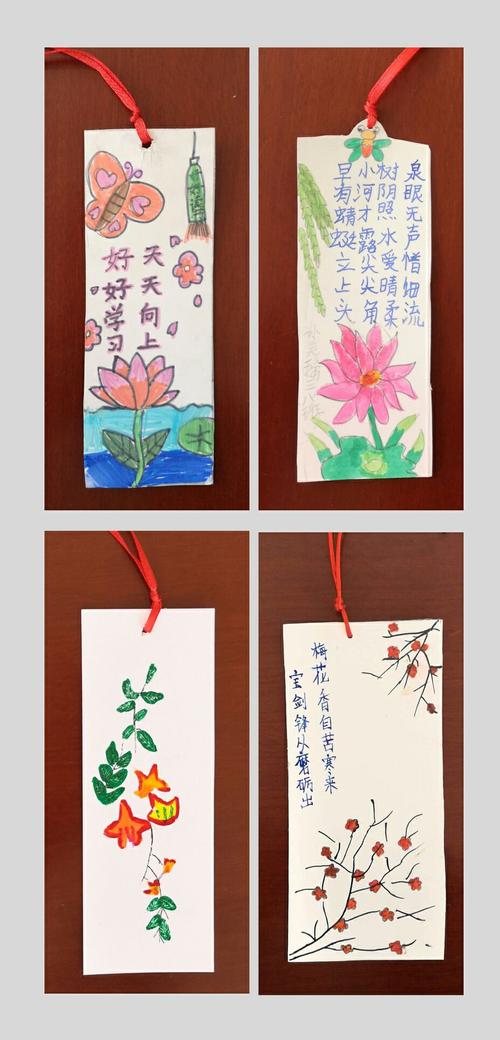 好好学习
天天向上
泉眼无声惜细流
树阴照水爱晴柔
小河才露尖尖角
早有蜻蜓立上头
梅花香自苦寒来
宝剑锋从磨砺出